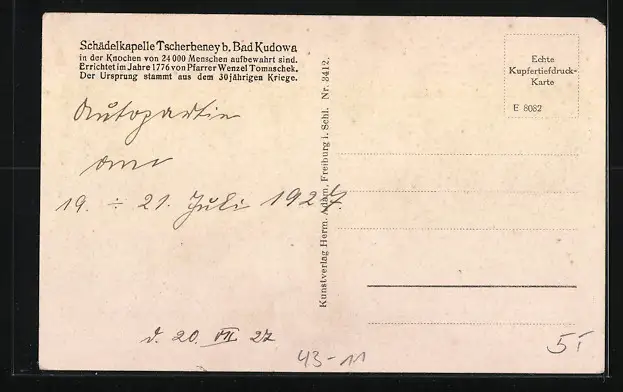 Schädelkapelle Tscherbeney b. Bad Kudowa
in der Knochen von 24 000 Menschen aufbewahrt sind.
Errichtet im Jahre 1776 von Pfarrer Wenzel Tomaschek.
Der Ursprung stammt aus dem 30jährigen Kriege.
Autopartie
am
19. ÷ 21. Juli 1927.
d. 20. VII. 27
43-11
Kunstverlag Herm. Adam, Freiburg i. Schl. Nr. 3412.
Echte
Kupfertiefdruck-
Karte
E 8082